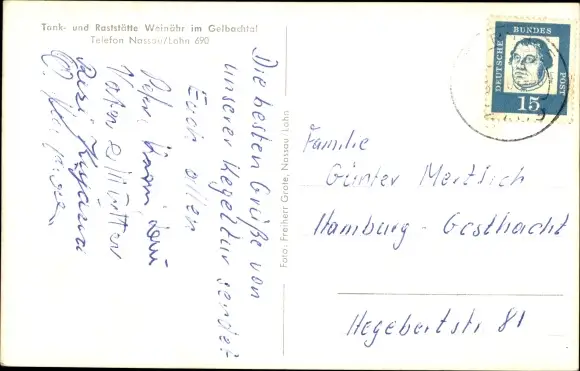 Tank- und Raststätte Weinähr im Gelbachtal
Telefon Nassau/Lahn 690
Die besten Grüße von
unserer Kegeltur sendet
Euch allen
Vater Mutter
Foto: Freiherr Grote, Nassau/Lahn
DEUTSCHE
BUNDES
POST
15
Familie
Günter Mertsich
Hamburg - Gasthacht
Hegebertstr 81